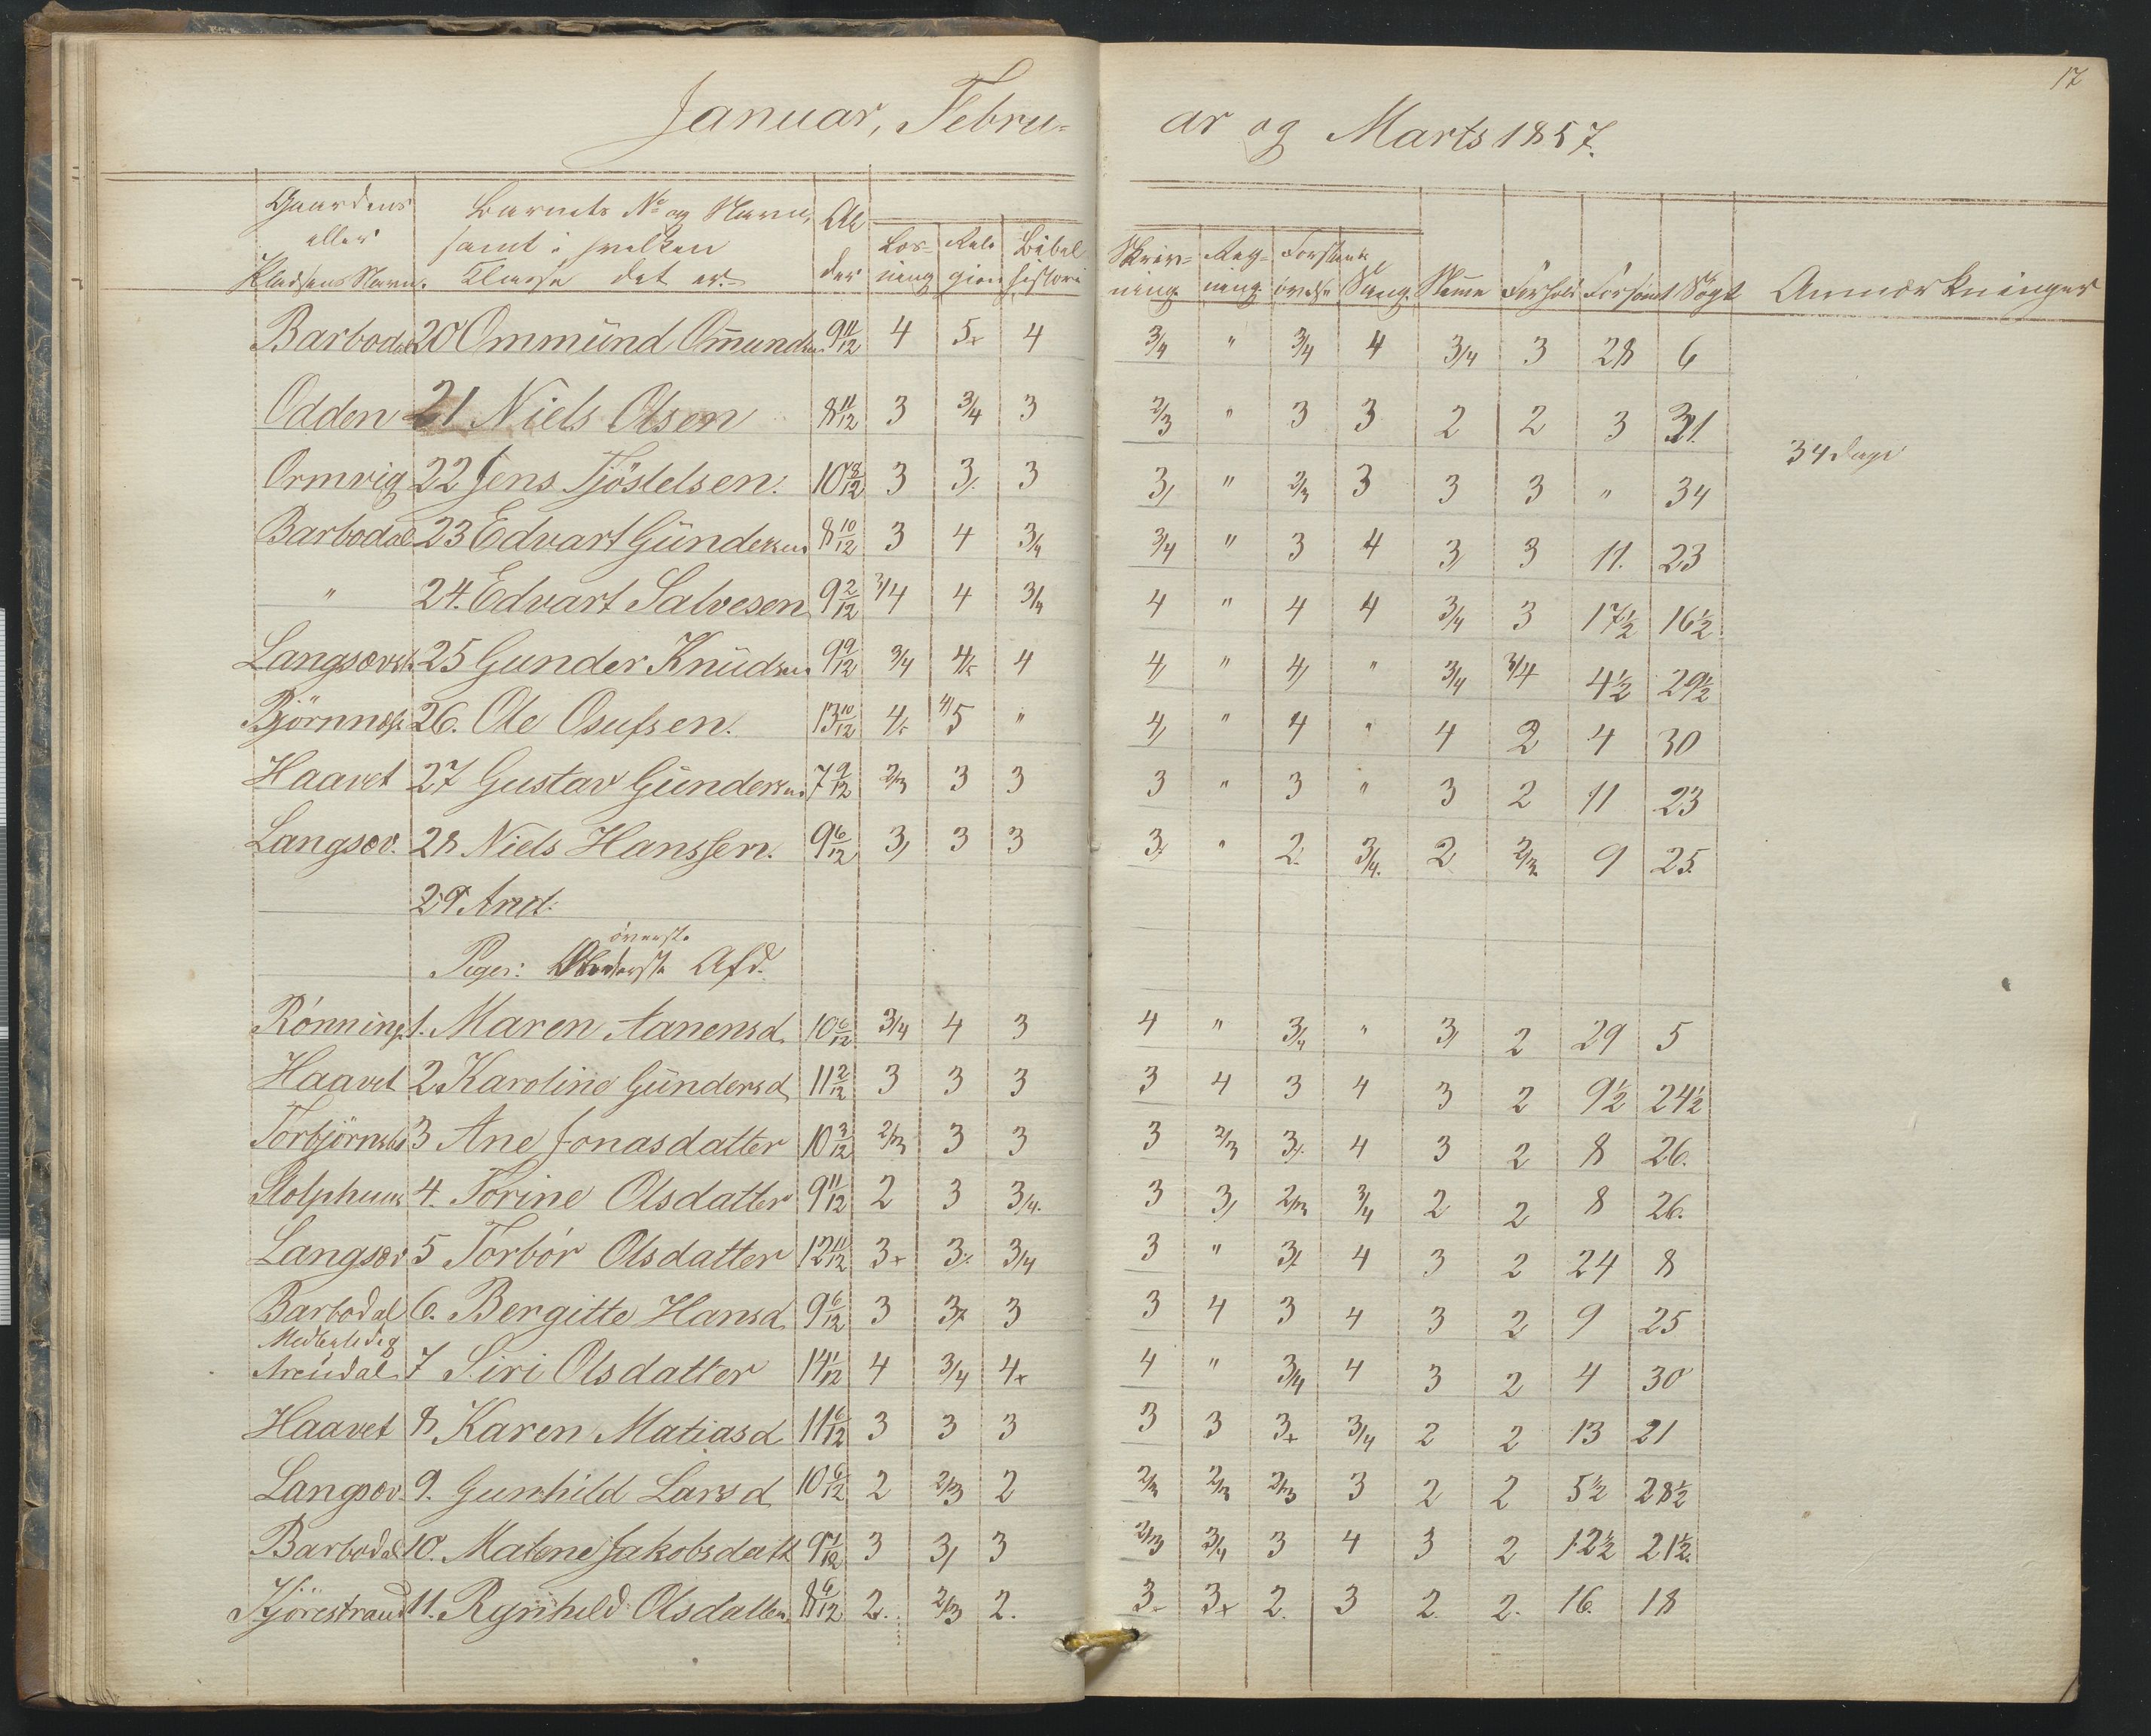 17
Januar, Febru- ar og Marts 1857.
Gaardens eller Pladsens Navn. | Barnets No og Navn, samt i hvilken Classe det er. | Al der | Læs- ning | Reli gion | Bibel historie | Skriv- ning | Reg- ning | Forstands øvelse | Sang. | Nemme | Forhold | Forsømt | Søgt | Anmærkninger
Barbodal 20 Ommund Omundsen 9 11/12 4 5+ 4 3/4 " 3/4 4 3/4 3 28 6
Odden 21 Niels Olsen 8 11/12 3 3/4 3 2/3 " 3 3 2 2 3 31.
34 Dage
Ormvig 22 Jens Tjöstelsen. 10 8/12 3 3/. 3 3/ " 2/3 3 3 3 " 34
Barbodal 23 Edvart Gündersen 8 10/12 3 4 3/4 3/4 " 3 4 3/ 3 11. 23
" 24. Edvart Salvesen 9 2/12 3/4 4 3/4 4 " 4 4 3/4 3 17 1/2 16 1/2
Langsævh. 25 Gunder Knüdsen 9 9/12 3/4 4/5 4 4/ " 4/ " 3/4 3/4 4 1/2 29 1/2
Björnnæs 26. Ole Osufsen. 13 10/12 4/5 4/5 " 4/ " 4 " 4 2 4 30
Haavet 27 Gustav Gündersen 7 9/12 2/3 3 3 3 " 3 " 3 2 11 23
Langsæv. 28 Niels Hanssen. 9 6/12 3/ 3 3 3/ " 2. 3/4. 2 2/3 9 25.
29. And:
Piger: øverste Afd.
Rönning. 1. Maren Aanensd. 10 6/12 3/4 4 3 4 " 3/4 " 3/ 2 29 5
Haavet 2 Karoline Gündersd. 11 2/12 3 3 3 3 4 3 4 3 2 9 1/2 24 1/2
Torbjörnsbo 3 Ane Jonasdatter 10 3/12 2/3 3 3 3 2/3 3/. 4 3 2 8 26.
4. Torine Olsdatter 9 11/12 2 3 3/4. 3 3/ 2/3 3/4 2 2 8 26.
Langsæv 5 Torbör Olsdatter 12 11/12 3+ 3/. 3/4 3 " 3+ 4 3 2 24 8
Barbodal 6. Bergitte Hansd. 9 6/12 3 3+ 3 3 4 3 4 3 2 9 25
Arendal 7 Siri Olsdatter 14 1/12 4 3/4 4+ 4 " 3/4 4 3 2 4 30
Haavet 8 Karen Matiasd. 11 6/12 3 3 3 3 3 3+ 3/4 2 2 13 21
Langsæv. 9. Gunhild Larsd. 10 6/12 2 2/3 2 2/3 2/3 2/3 3 2 2 5 1/2 28 1/2
Barbodal 10. Malene Jakobsdatt. 9 1/12 3 3/ 3 2/3 3/4 3 4 3 2 12 1/2 21 1/2.
Kjörestrand 11. Rgnhild Olsdatter. 8 9/12 2. 2/3 2. 3- 3+ 2. 3 2 2. 16. 18